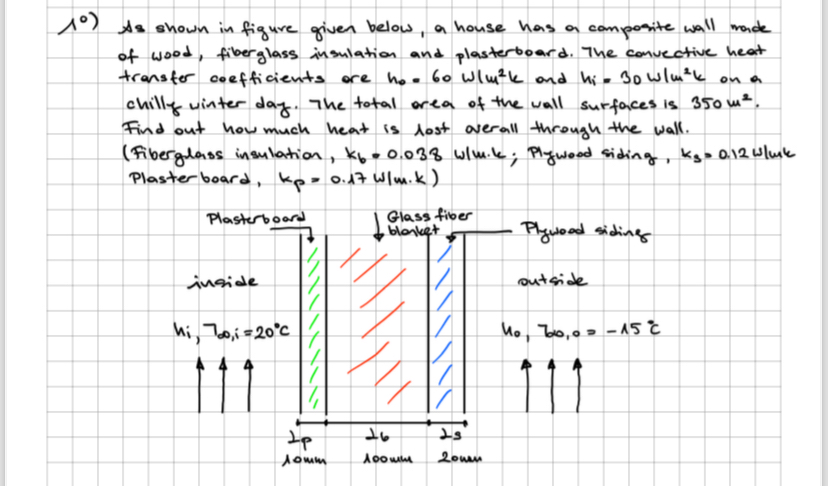 1°) As shown in figure given below, a house has a composite wall made
of wood, fiberglass insulation and plasterboard. The convective heat
transfer coefficients are ho = 60 W/m²k and hi = 30 W/m²k on a
chilly winter day. The total area of the wall surfaces is 350 m².
Find out how much heat is lost overall through the wall.
(Fiberglass insulation, kb = 0.038 W/m.k; Plywood siding, ks = 0.12 W/mk
Plasterboard, kp = 0.17 W/m.k)
Plasterboard
Glass fiber
blanket
Plywood siding
inside
outside
hi, T∞,i = 20°C
ho, T∞,o = -15°C
Lp
Lb
Ls
10mm
100mm
20mm